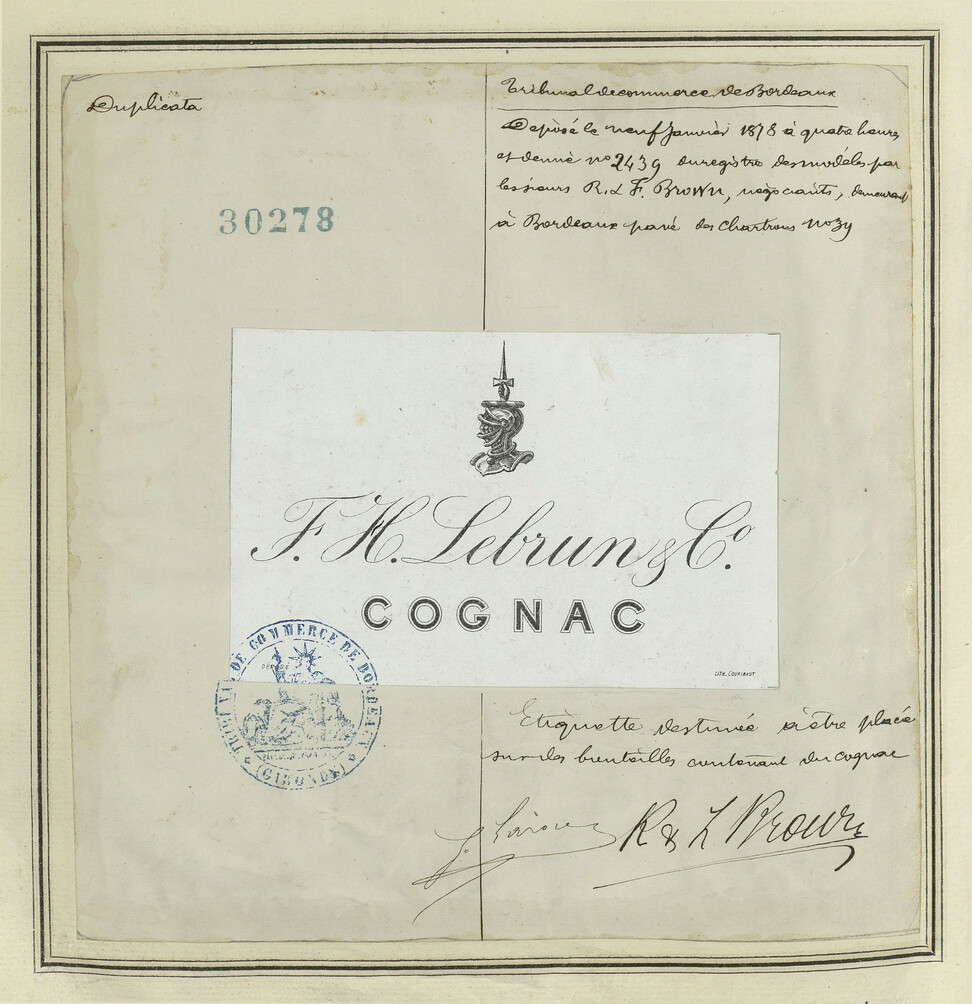 Duplicata
Tribunal de commerce de Bordeaux
Déposé le neuf Janvier 1878 à quatre heures
et demie no 2439 du registre des modèles par
les sieurs R. & F. Brown, négociants, demeurant
à Bordeaux pavé des Chartrons no 39
30278
F. H. Lebrun & Co.
COGNAC
LITH. COURIBAUT
TRIBUNAL DE COMMERCE DE BORDEAUX
DÉPOSÉ
(GIRONDE)
Etiquette destinée à être placée
sur des bouteilles contenant du cognac
R & L Brown